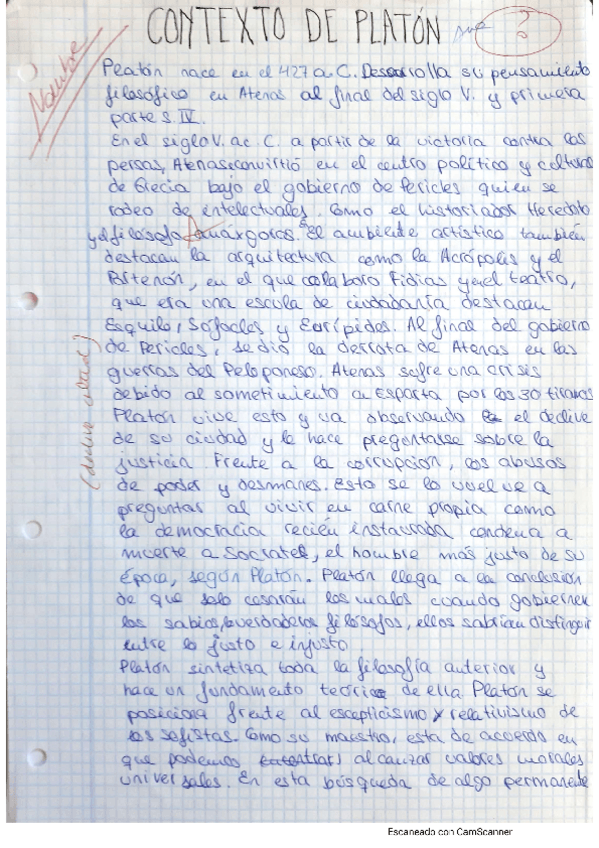 CONTEXTO DE PLATÓN
?
Nombre
Platón nace en el 427 a.C. Desarrolla su pensamiento
filosófico en Atenas al final del siglo V. y primera
parte s. IV.
En el siglo V. a.C. a partir de la victoria contra los
persas, Atenas convirtió en el centro político y cultural
de Grecia bajo el gobierno de Pericles quien se
rodeo de intelectuales. Como el historiador Heredoto
y el filósofo Anaxgoros. El ambiente artístico también
destacan la arquitectura como la Acrópolis y el
Partenón, en el que colaboro Fidias y en el teatro,
que era una escula de ciudadanía destacan
Esquilo, Sófocles y Eurípides. Al final del gobierno
de Pericles, se dió la derrota de Atenas en las
guerras del Peloponeso. Atenas sufre una crisis
debido al sometimiento a Esparta por los 30 tiranos
Platón vive esto y va observando el declive
de su ciudad y le hace preguntarse sobre la
justicia. Frente a la corrupción, los abusos
de poder y desmanes. Esto se lo vuelve a
preguntar al vivir en carne propia como
la democracia recién instaurada condena a
muerte a Socrates, el hombre más justo de su
época, según Platón. Platón llega a la conclusión
de que solo cesarán los males cuando gobiernen
los sabios, verdaderos filósofos, ellos sabrían distinguir
entre lo justo e injusto
Platón sintetiza toda la filosofía anterior y
hace un fundamento teórico de ella Platón se
posiciona frente al escepticismo y relativismo de
los sofistas. Como su maestro, esta de acuerdo en
que podemos alcanzar valores morales
universales. En esta búsqueda de algo permanente
Escaneado con CamScanner